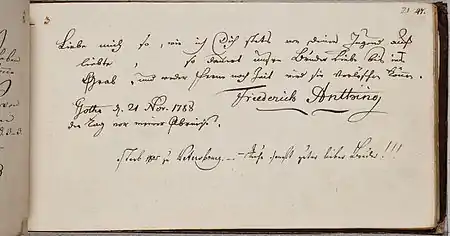 3 21 47.
Liebe mich so, wie ich Dich stets von deiner Jugend auf
liebte, so dauert unsre Bruder Liebe bis ins
Grab, und weder Ferne noch Zeit wird sie verlöschen können.
Friederich Anthing
Gotha d. 21 Nov. 1788
den Tag vor meiner Abreise.
starb zu Petersburg — Ruhe sanft guter lieber Bruder!!!